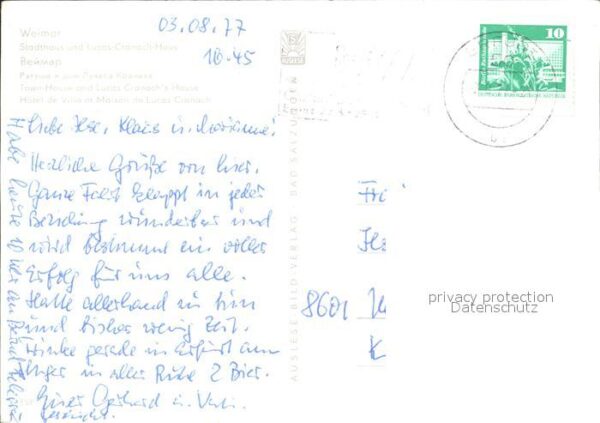 03.08.77
16.45
Weimar
Stadthaus und Lucas-Cranach-Haus
Веймар
Ратуша и дом Лукаса Кранаха
Town House and Lucas Cranach's House
Hôtel de Ville et Maison de Lucas Cranach
Liebe Ilse, Klaus u.
Herzliche Grüße von hier.
Ganze Fahrt klappt in jeder
Beziehung wunderbar und
wird bestimmt ein voller
Erfolg für uns alle.
Hatte allerhand zu tun
und bisher wenig Zeit.
Trinke gerade in Erfurt am
in aller Ruhe 2 Bier.
Euer Gerhard u.
Habe heute 10 Uhr an
AUSLESE-BILD-VERLAG · BAD SALZUNGEN
10
DEUTSCHE DEMOKRATISCHE REPUBLIK
8601
K
privacy protection
Datenschutz